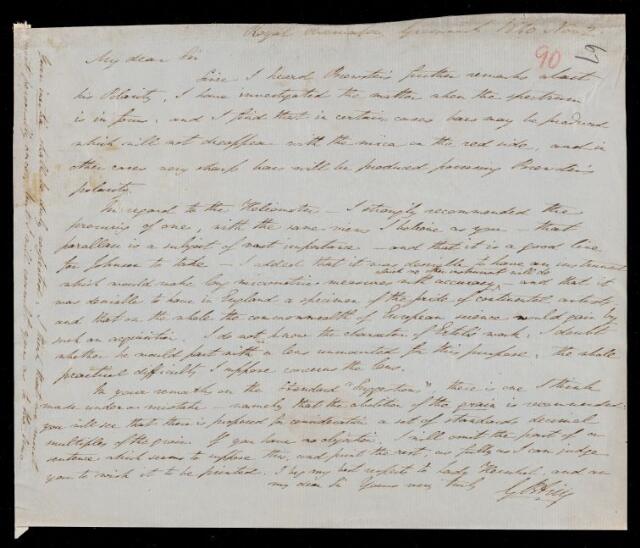 Royal Observatory Greenwich 1840 Nov. 2
90
67
My dear Sir
Since I heard Brewster's further remarks about
his Polarity, I have investigated the matter when the spectrum
is in focus, and I find that in certain cases bars may be produced
which will not disappear with the mica on the red side, and in
other cases very sharp bars will be produced possessing Brewster's
polarity.
In regard to the Heliometer — I strongly recommended the
procuring of one, with the same views I believe as you — that
parallax is a subject of vast importance — and that it is a good line
for Johnson to take — I added that it was desirable to have an instrument
which no other instrument will do
which would make long micrometric measures with accuracy — and that it
was desirable to have in England a specimen of the pride of continental artists,
and that on the whole the commonwealth of European science would gain by
such an acquisition. I do not know the character of work. I doubt
whether he would part with a lens unmounted for this purpose, the whole
practical difficulty I suppose concerns the lens.
In your remarks on the Standard "Suggestions" there is one I think
made under a mistake — namely that the abolition of the grain is recommended:
you will see that there is proposed for consideration a set of standards decimal
multiples of the grain. If you have no objection, I will omit the part of a
sentence which seems to suppose this, and print the rest, as fully as I can judge
you to wish it to be printed. I beg my best respects to Lady Herschel, and am
my dear Sir Yours very truly
G B Airy